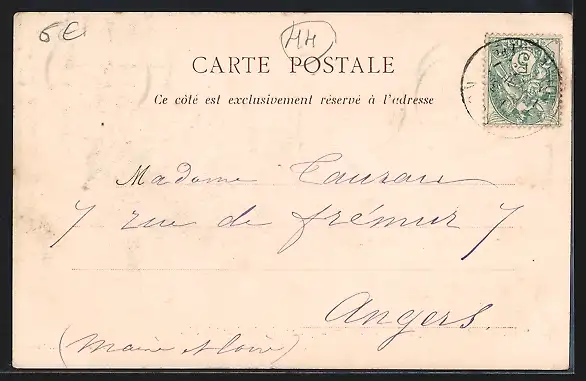 6€
HH
CARTE POSTALE
Ce côté est exclusivement réservé à l'adresse
Madame Tauzau
7 rue de frémur 7
Angers.
(Maine et Loire)